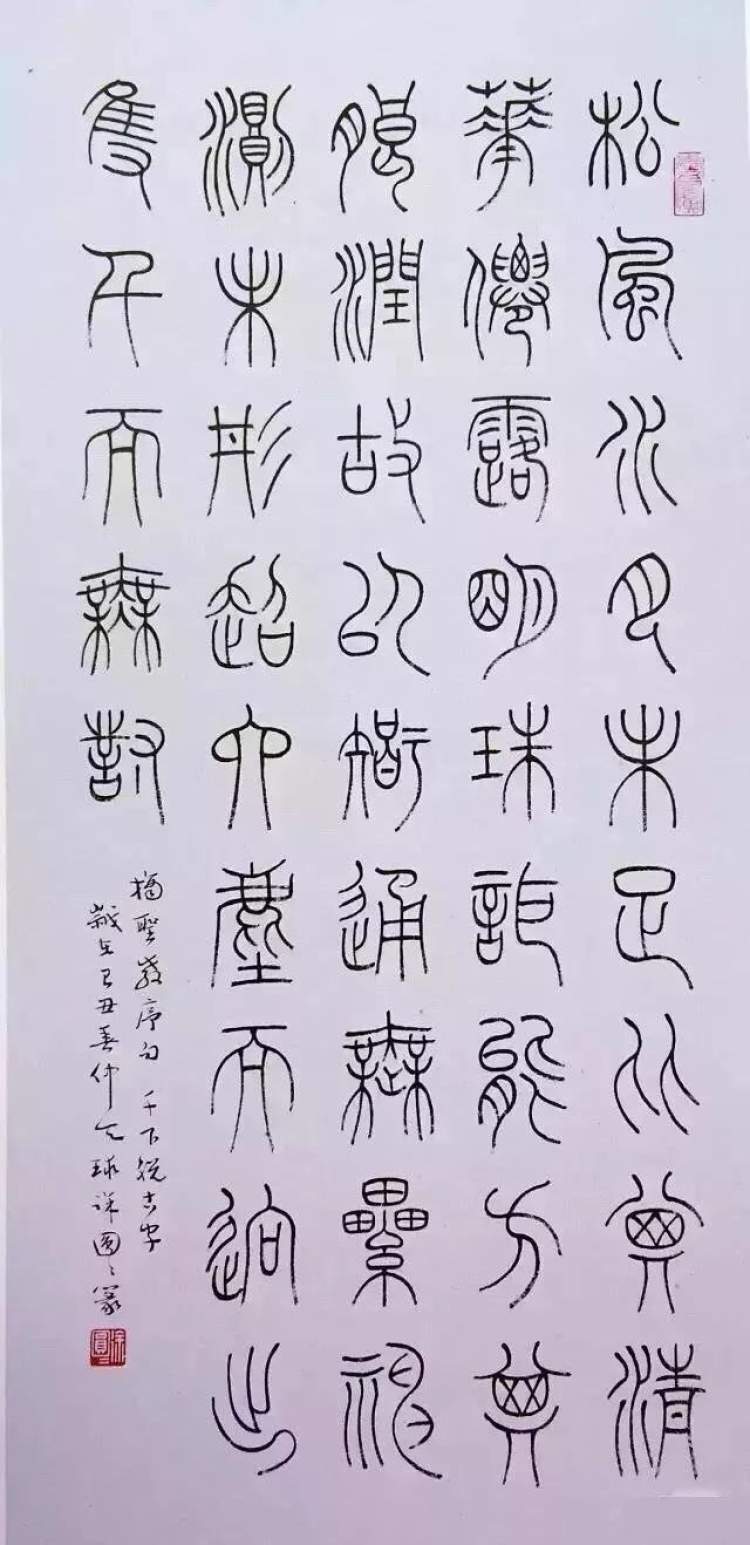 松風水月未足比其清
華僊露明珠詎能方其
朗潤故以智通無纍神
測未形超六塵而迥出
隻千而無對
摘聖教序句 千下脱古字
歲在己丑春仲 圓圓篆